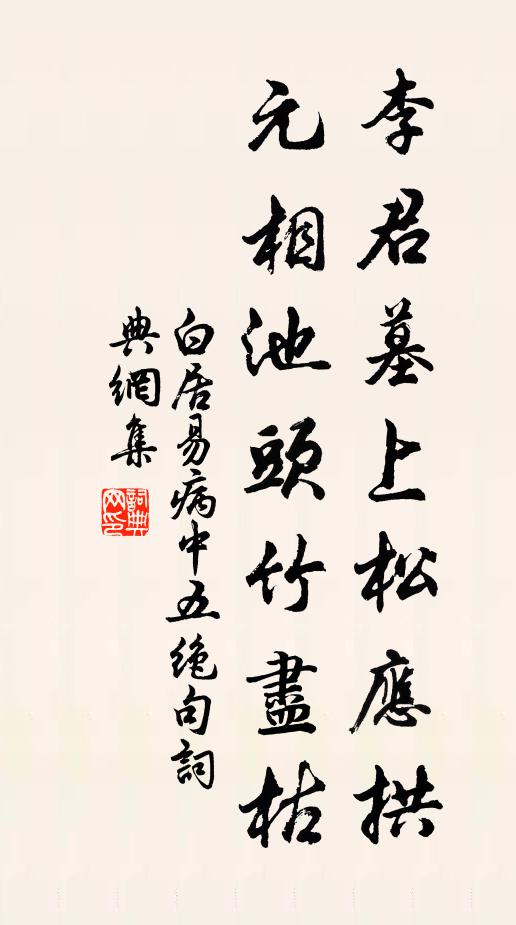 李君墓上松應拱
元相池頭竹盡枯
白居易病中五絶句詞
典網集
詞典
网印